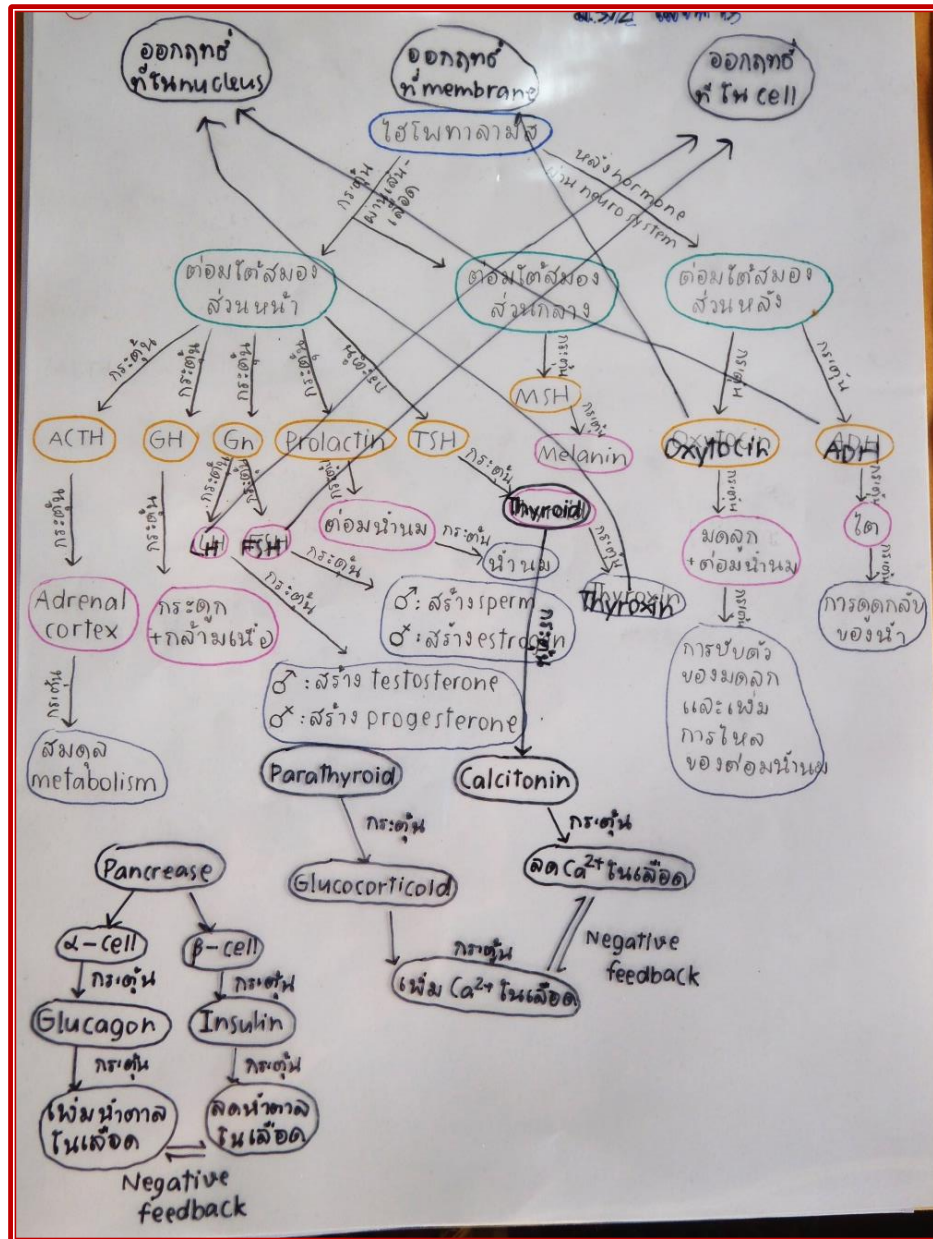 ออกฤทธิ์
ที่ในnucleus
ออกฤทธิ์
ที่membrane
ออกฤทธิ์
ที่ใน cell
ไฮโพทาลามัส
กระตุ้น
ผ่านเส้น-
เลือด
หลั่งhormone
ผ่านneuro system
ต่อมใต้สมอง
ส่วนหน้า
ต่อมใต้สมอง
ส่วนกลาง
ต่อมใต้สมอง
ส่วนหลัง
กระตุ้น
กระตุ้น
กระตุ้น
กระตุ้น
กระตุ้น
กระตุ้น
กระตุ้น
กระตุ้น
ACTH
GH
Gn
Prolactin
TSH
MSH
Oxytocin
ADH
กระตุ้น
Melanin
กระตุ้น
กระตุ้น
กระตุ้น
กระตุ้น
กระตุ้น
กระตุ้น
กระตุ้น
กระตุ้น
LH
FSH
ต่อมน้ำนม
Thyroid
มดลูก
+ต่อมน้ำนม
ไต
กระตุ้น
น้ำนม
กระตุ้น
Thyroxin
กระตุ้น
กระตุ้น
การดูดกลับ
ของน้ำ
Adrenal
cortex
กระดูก
+กล้ามเนื้อ
กระตุ้น
กระตุ้น
♂ : สร้างsperm
: สร้างestrogin
กระตุ้น
♂ : สร้าง testosterone
: สร้าง progesterone
การบีบตัว
ของมดลูก
และเพิ่ม
การไหล
ของต่อมน้ำนม
กระตุ้น
สมดุล
metabolism
Parathyroid
Calcitonin
กระตุ้น
กระตุ้น
Glucocorticold
ลดCa²⁺ในเลือด
กระตุ้น
เพิ่ม Ca²⁺ ในเลือด
Negative
feedback
Pancrease
α-cell
β-cell
กระตุ้น
กระตุ้น
Glucagon
Insulin
กระตุ้น
กระตุ้น
เพิ่มน้ำตาล
ในเลือด
ลดน้ำตาล
ในเลือด
Negative
feedback